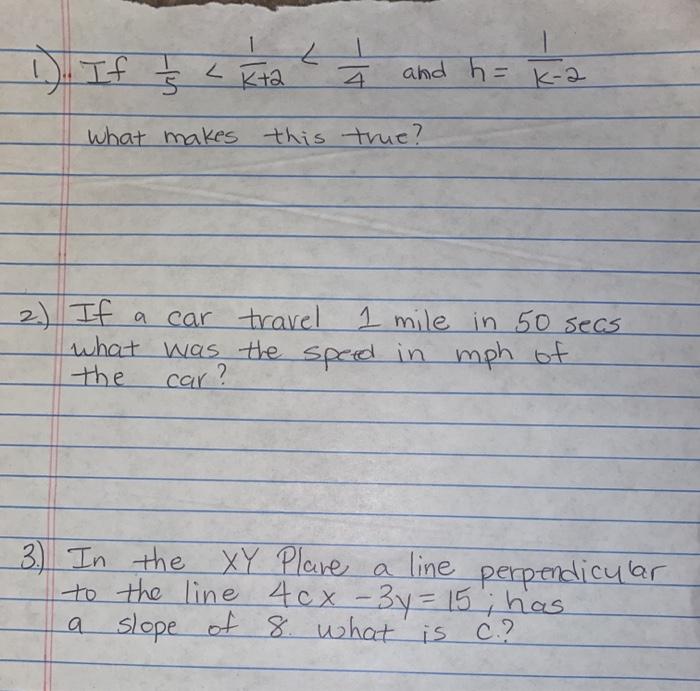 1.) If 1/5 < 1/K+2 < 1/4 and h = 1/K-2
what makes this true?
2.) If a car travel 1 mile in 50 secs
what was the speed in mph of
the car?
3.) In the XY Plane a line perpendicular
to the line 4cx - 3y = 15; has
a slope of 8. what is c.?